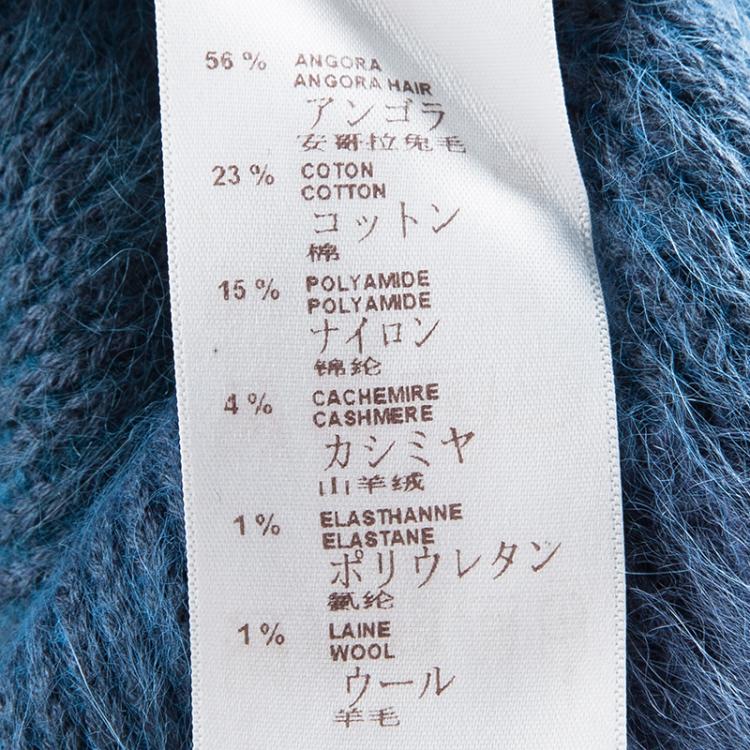 56 % ANGORA
ANGORA HAIR
アンゴラ
安哥拉兔毛
23 % COTON
COTTON
コットン
棉
15 % POLYAMIDE
POLYAMIDE
ナイロン
锦纶
4 % CACHEMIRE
CASHMERE
カシミヤ
山羊绒
1 % ELASTHANNE
ELASTANE
ポリウレタン
氨纶
1 % LAINE
WOOL
ウール
羊毛